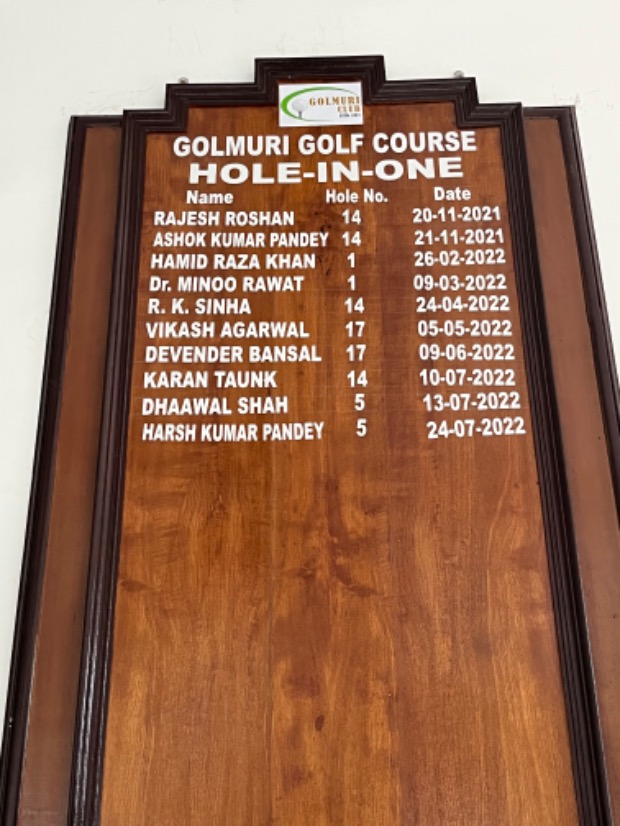 GOLMURI
CLUB
GOLMURI GOLF COURSE
HOLE-IN-ONE
Name Hole No. Date
RAJESH ROSHAN 14 20-11-2021
ASHOK KUMAR PANDEY 14 21-11-2021
HAMID RAZA KHAN 1 26-02-2022
Dr. MINOO RAWAT 1 09-03-2022
R. K. SINHA 14 24-04-2022
VIKASH AGARWAL 17 05-05-2022
DEVENDER BANSAL 17 09-06-2022
KARAN TAUNK 14 10-07-2022
DHAAWAL SHAH 5 13-07-2022
HARSH KUMAR PANDEY 5 24-07-2022